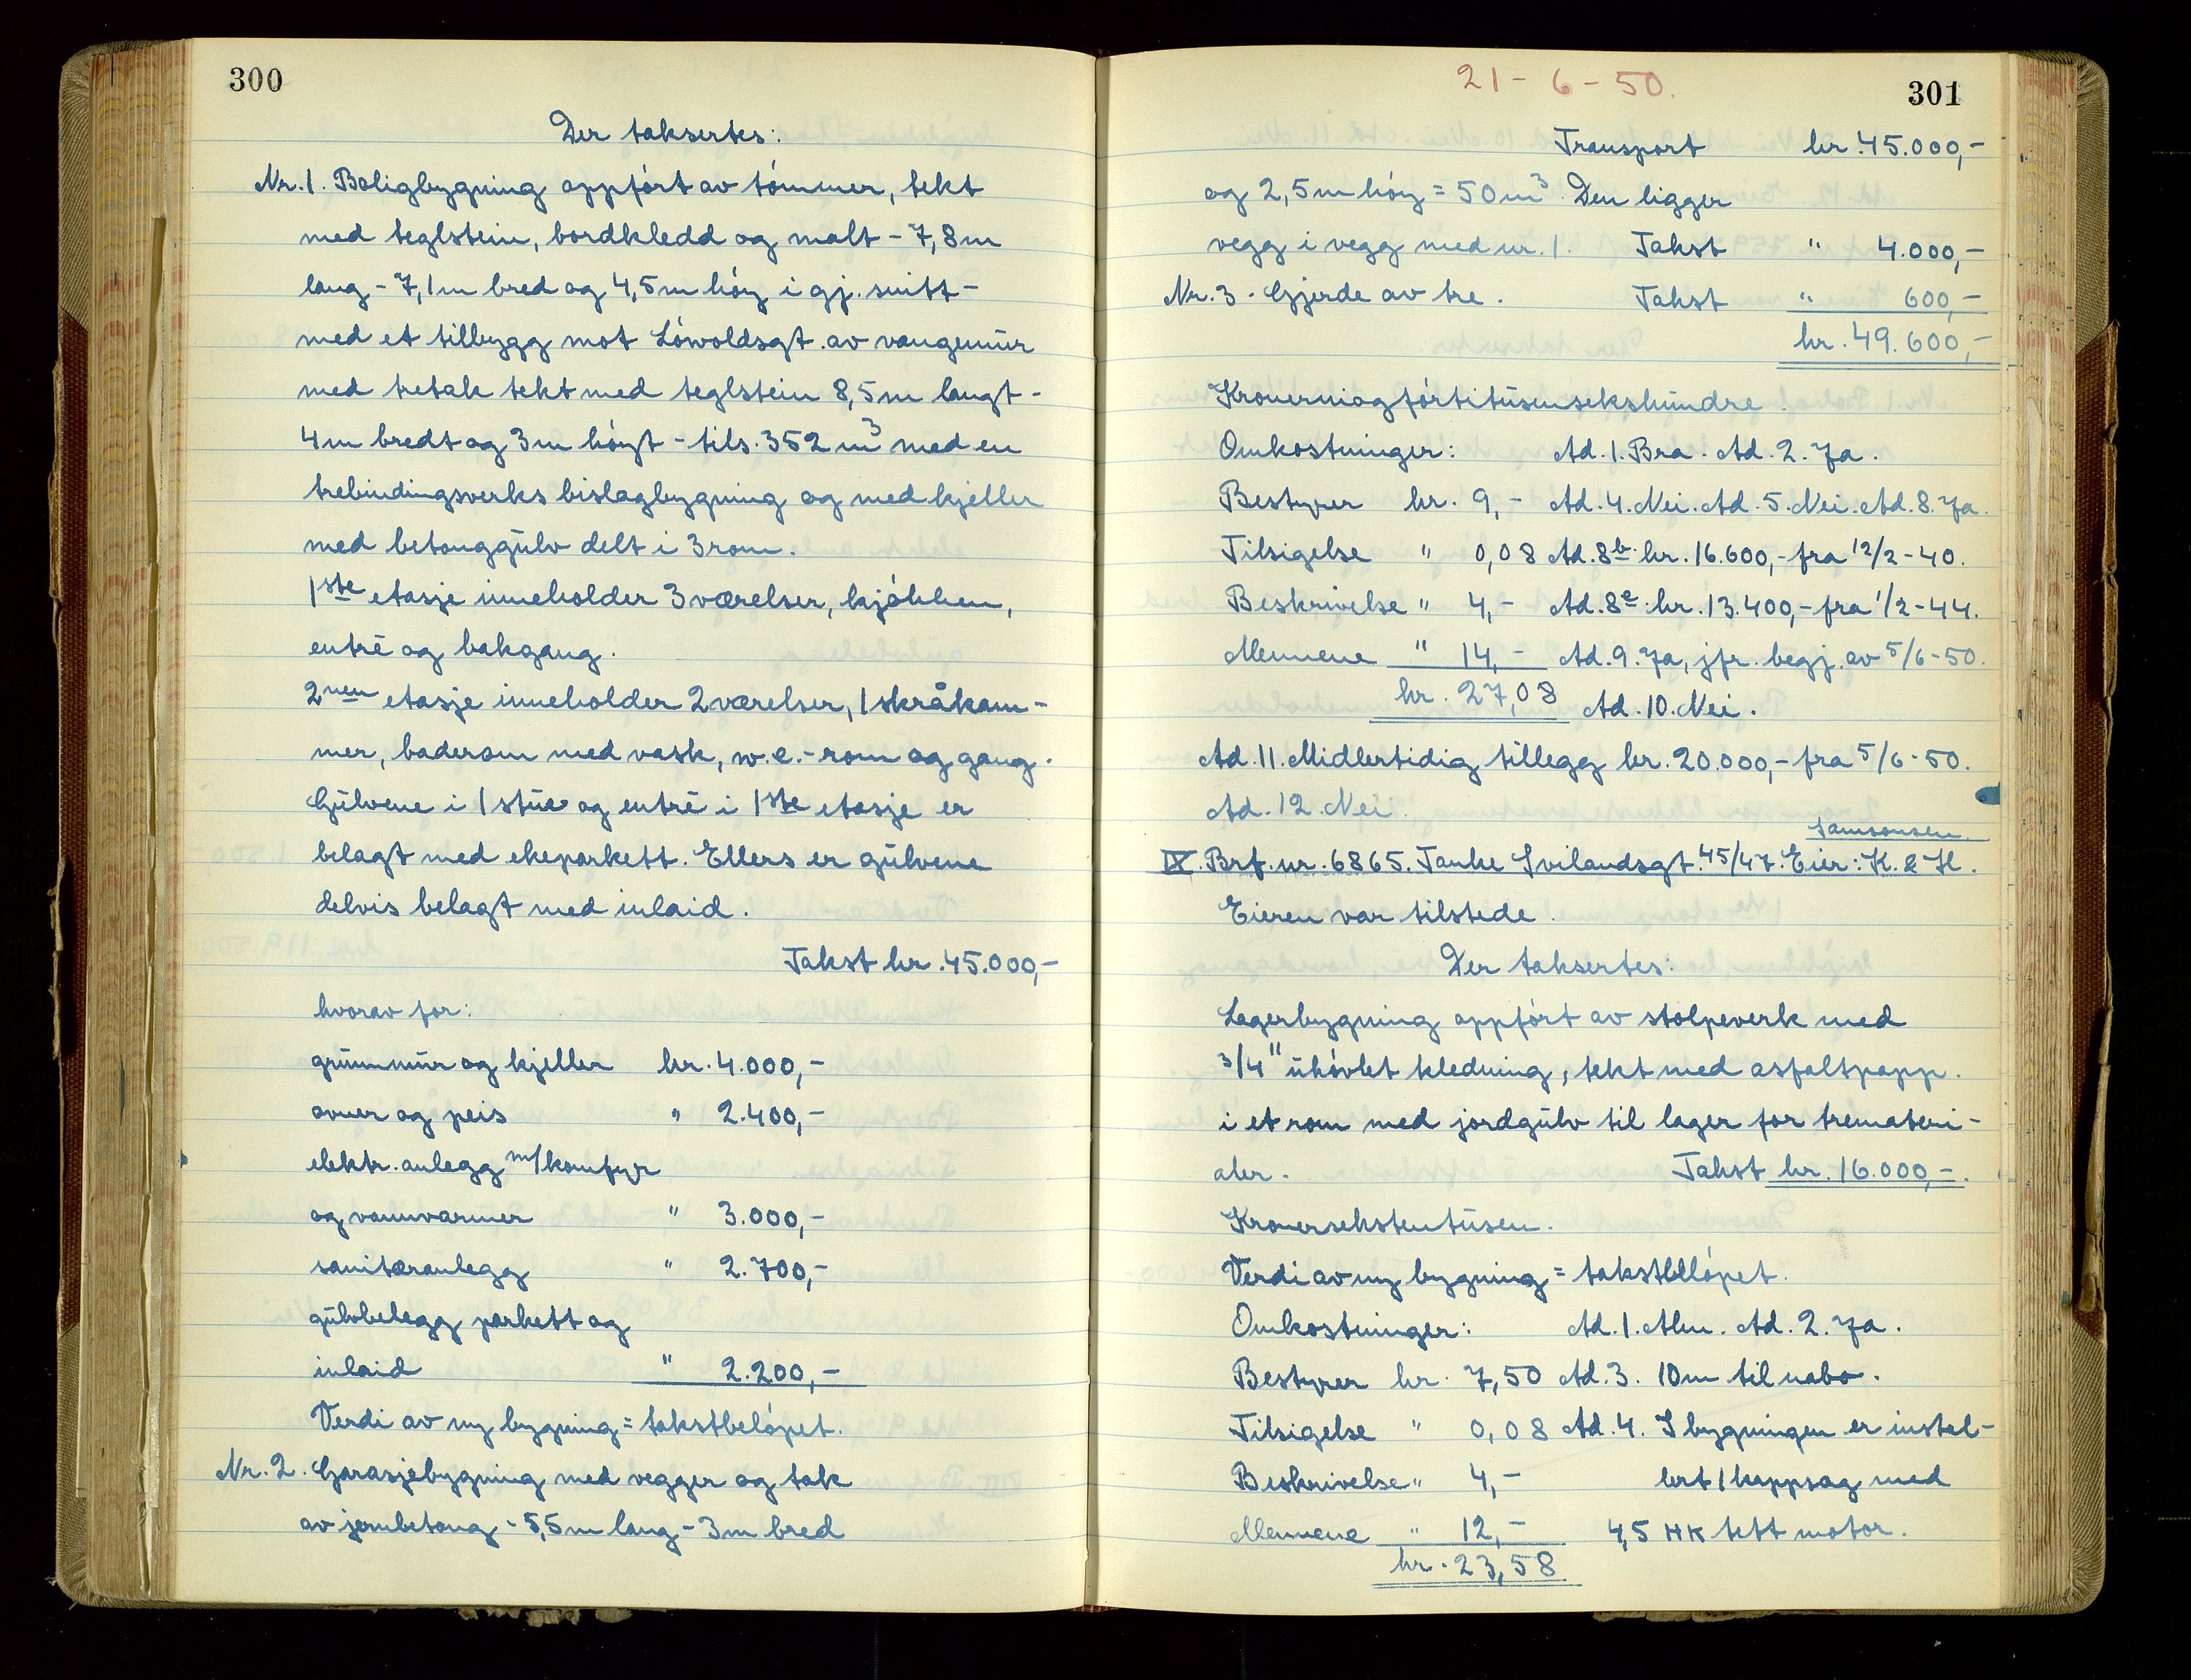 300
Der taksertes:
Nr. 1. Boligbygning oppført av tømmer, tekt
med teglstein, bordkledd og malt - 7,8 m
lang - 7,1 m bred og 4,5 m høy i gj. snitt -
med et tilbygg mot Løwoldsgt. av vangemur
med tretak tekt med teglstein 8,5 m langt -
4 m bredt og 3 m høyt - tils. 352 m³ med en
trebindingsverks bislagbygning og med kjeller
med betonggulv delt i 3 rom.
1ste etasje inneholder 3 værelser, kjøkken,
entré og bakgang.
2nen etasje inneholder 2 værelser, 1 skråkam-
mer, baderom med vask, w.c.-rom og gang.
Gulvene i 1 stue og entré i 1ste etasje er
belagt med ekeparkett. Ellers er gulvene
delvis belagt med inlaid.
Takst kr. 45.000,-
hvorav for:
grunnmur og kjeller kr. 4.000,-
ovner og peis " 2.400,-
elektr. anlegg m/komfyr
og vannvarmer " 3.000,-
sanitæranlegg " 2.700,-
gulvbelegg parkett og
inlaid " 2.200,-
Verdi av ny bygning = takstbeløpet.
Nr. 2. Garasjebygning med vegger og tak
av jernbetong - 5,5 m lang - 3 m bred
21-6-50.
301
Transport kr. 45.000,-
og 2,5 m høy = 50 m³. Den ligger
vegg i vegg med nr. 1. Takst " 4.000,-
Nr. 3. Gjerde av tre. Takst " 600,-
kr. 49.600,-
Kronerniogførtitusensekshundre.
Omkostninger: Ad. 1. Bra. Ad. 2. Ja.
Bestyrer kr. 9,- Ad. 4. Nei. Ad. 5. Nei. Ad. 8. Ja.
Tilsigelse " 0,08 Ad. 8b. kr. 16.600,- fra 12/2-40.
Beskrivelse " 4,- Ad. 8c. kr. 13.400,- fra 1/2-44.
Mennene " 14,- Ad. 9. Ja, jfr. begj. av 5/6-50.
kr. 27,08 Ad. 10. Nei.
Ad. 11. Midlertidig tillegg kr. 20.000,- fra 5/6-50.
Ad. 12. Nei.
Samsonsen.
IX. Brf. nr. 6865. Tanke Svilandsgt. 45/47. Eier: K. & H.
Eieren var tilstede.
Der taksertes:
Lagerbygning oppført av stolpeverk med
3/4" uhøvlet kledning, tekt med asfaltpapp.
i et rom med jordgulv til lager for tremateri-
aler. Takst kr. 16.000,-.
Kronersekstentusen.
Verdi av ny bygning = takstbeløpet.
Omkostninger: Ad. 1. Alm. Ad. 2. Ja.
Bestyrer kr. 7,50 Ad. 3. 10 m til nabo.
Tilsigelse " 0,08 Ad. 4. I bygningen er instal-
Beskrivelse " 4,- lert 1 kappsag med
Mennene " 12,- 4,5 HK tett motor.
kr. 23,58